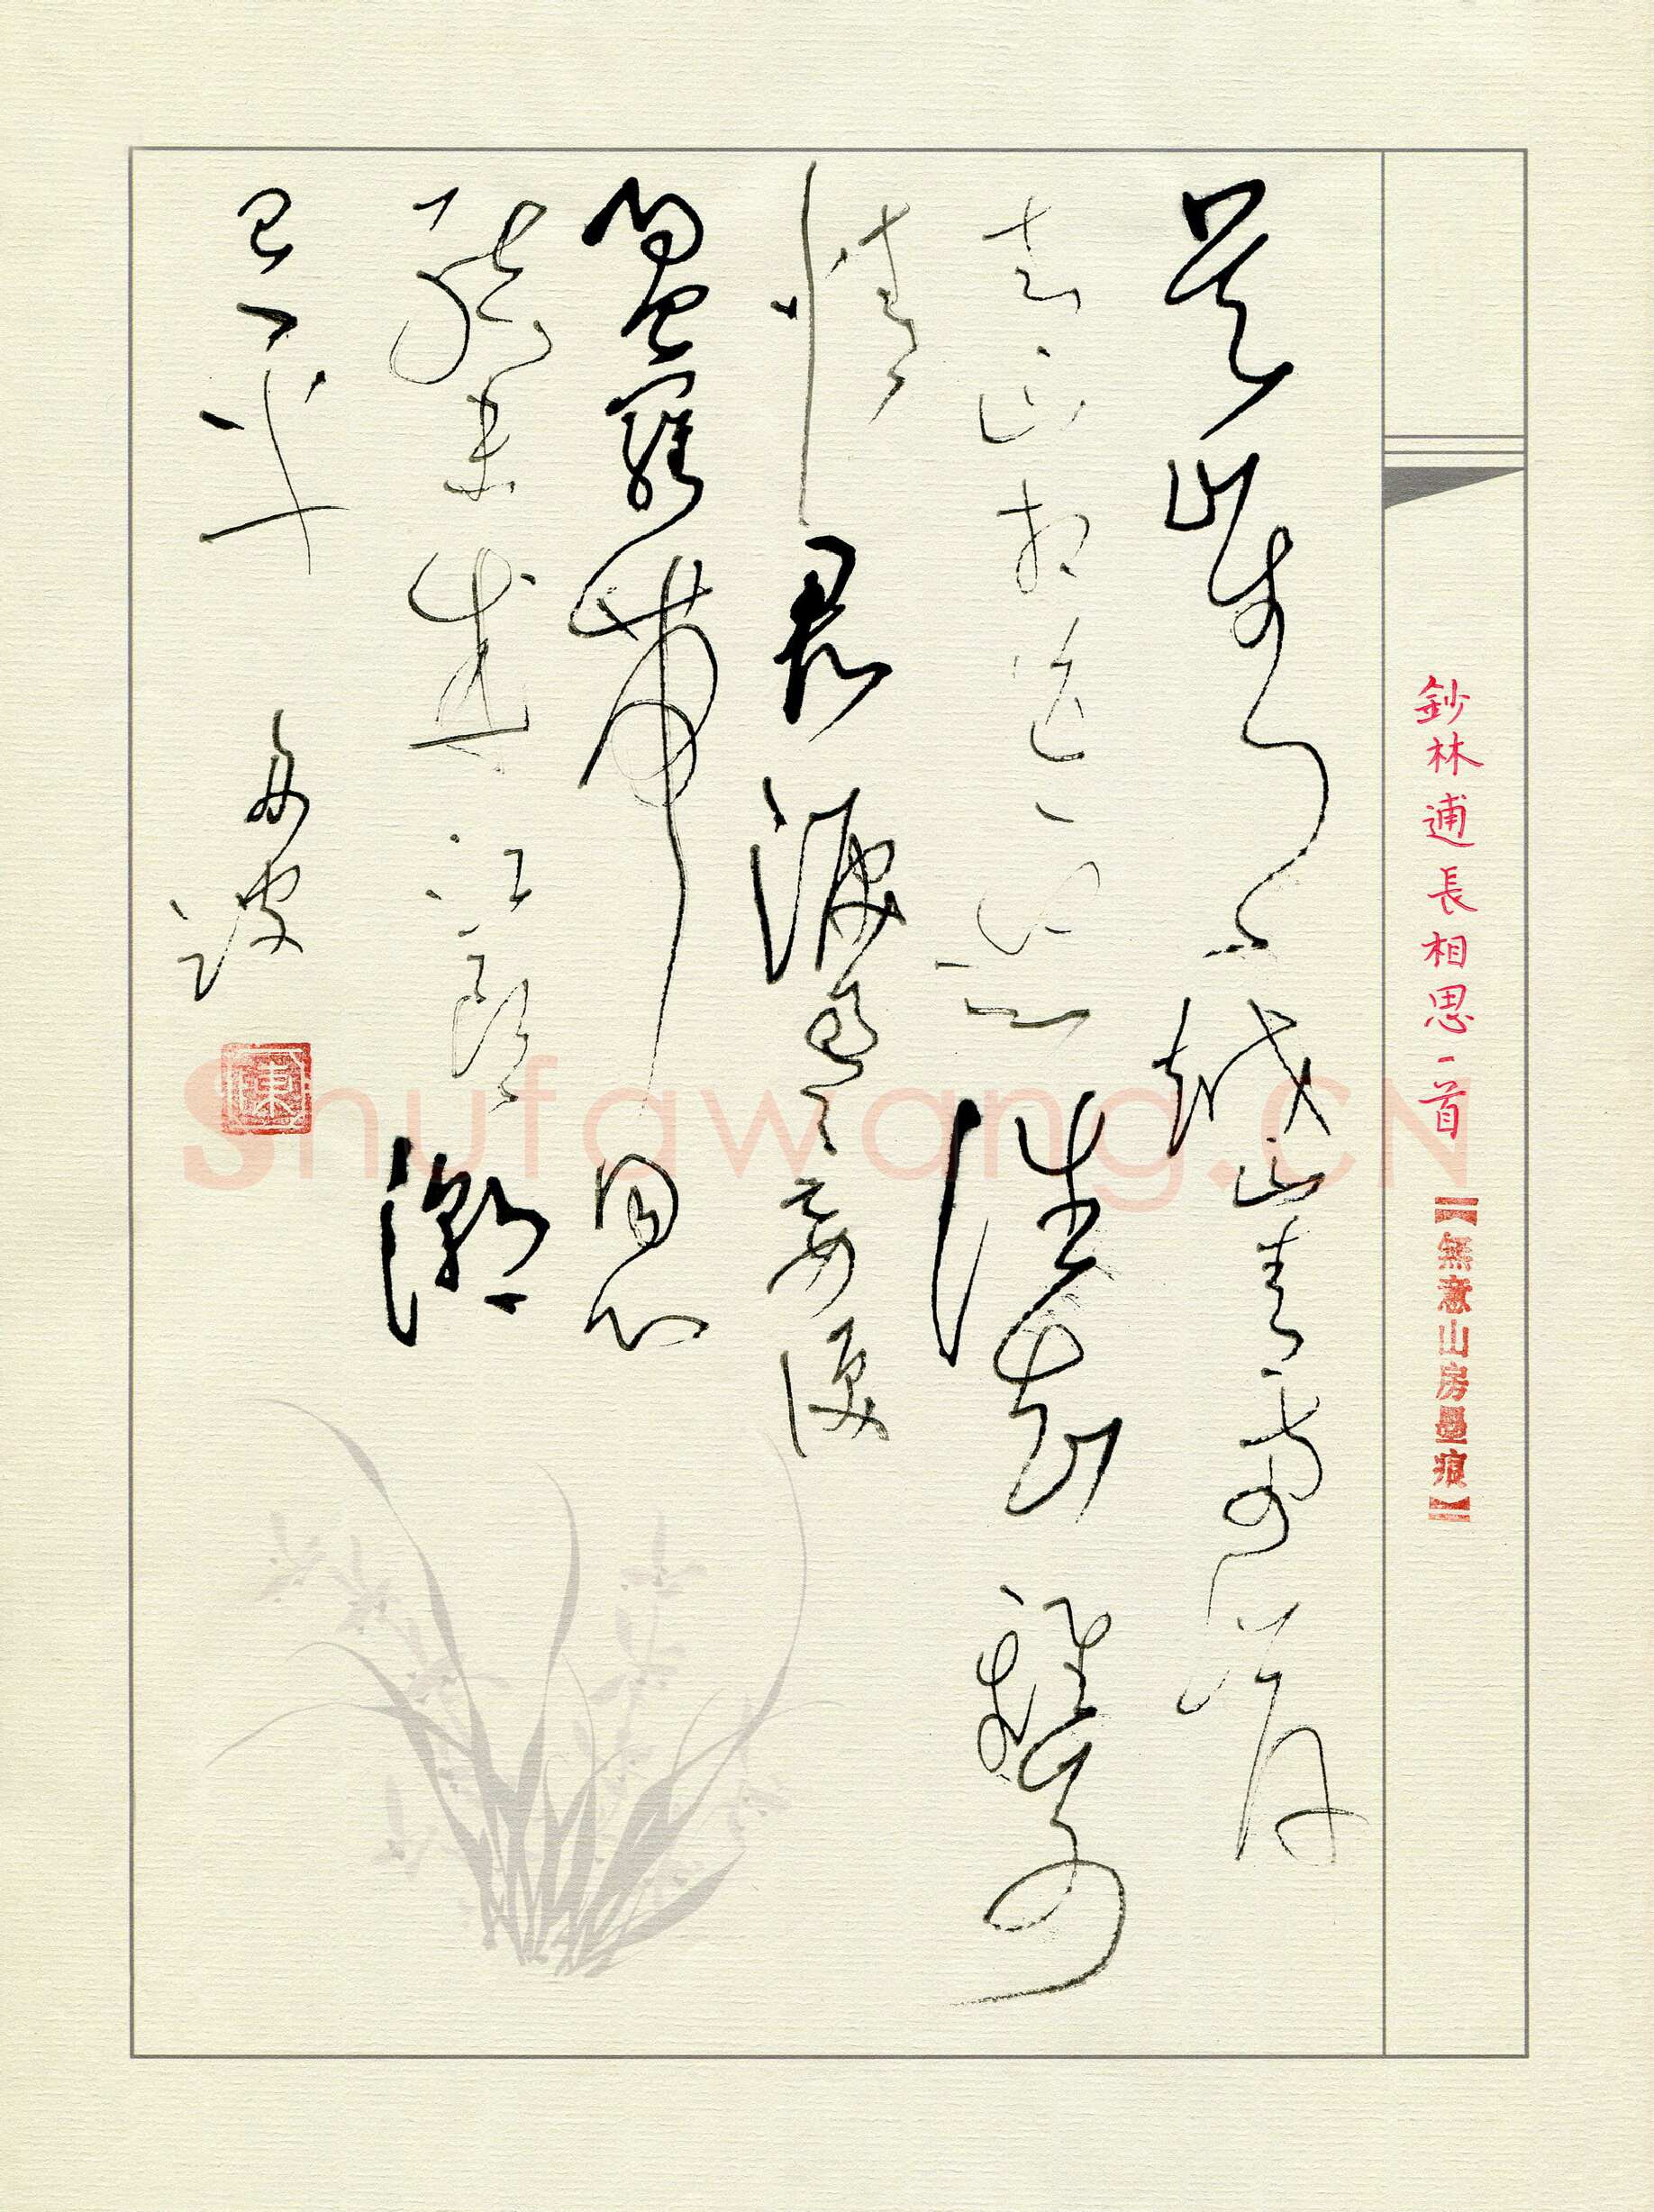 鈔林逋長相思一首
【無意山房墨痕】
吳山青越山青兩岸
青山相送迎誰知離別
情君淚盈妾淚
盈羅帶同心
結未成江頭潮
已平
Shufawang.CN